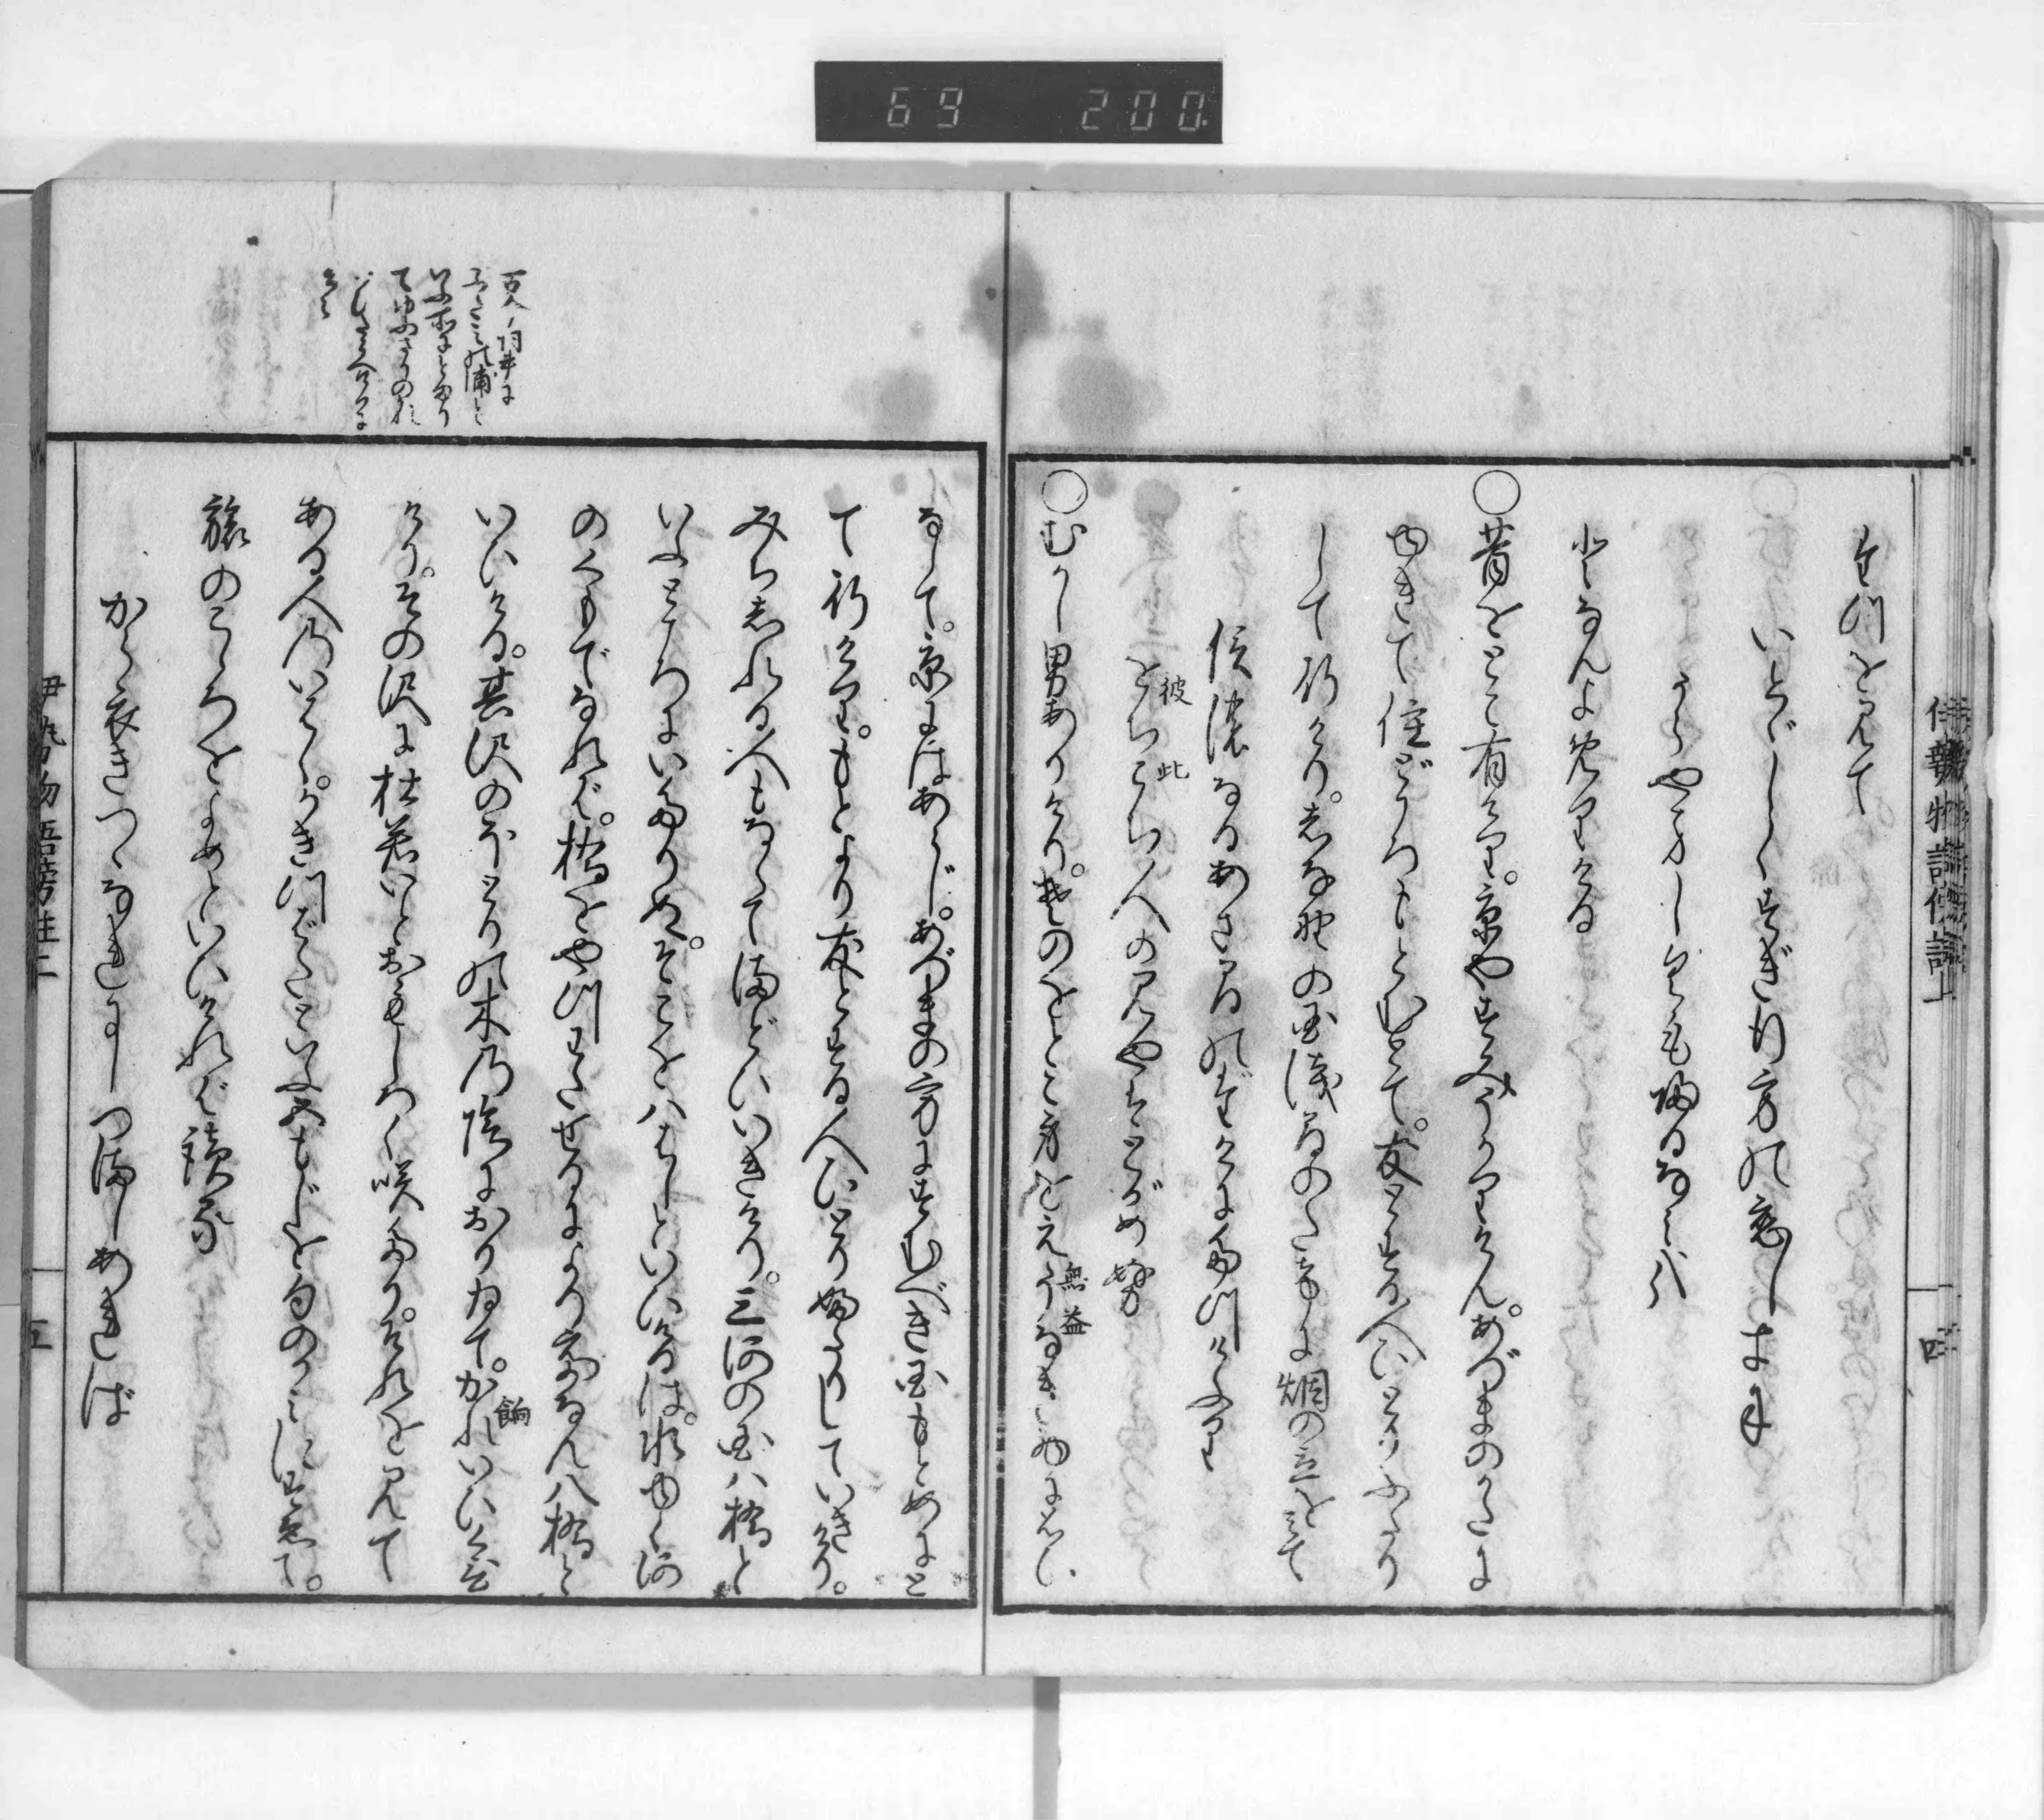 69 200.
たつを見て
いとゞしくすぎ行方の恋しきに
うら山しくも帰るなみかな
となんよめりける
○昔をとこ有けり。京やすみうかりけん。あづまのかたに
ゆきて住どころもとむとて。友とする人ひとりふたり
して行けり。しなのの国浅間のたけに烟の立を見て
信濃なるあさまのたけにたつけふり
をちこち人の見やはとがめぬ
彼 此
○むかし男ありけり。そのをとこ身をえうなき物に思ひ
無益
なして。京にはあらじ。あづまの方にすむべき国もとめにと
て行けり。もとより友とする人ひとりふたりしていきけり。
みちしれる人もなくてまどひいきけり。三河の国八橋と
いふところにいたりぬ。そこを八はしといひけるは。水ゆく河
のくもでなれば。橋を八つわたせるによりてなん八橋と
いひける。其沢のほとりの木の陰におりゐて。かれいひくひ
餉
けり。その沢に杜若いとおもしろく咲たり。それを見て
ある人のいはく。かきつばたといふ五もじを句のかみにすゑて。
旅のこころをよめといひければ読る
から衣きつゝなれにしつましあれば
伊勢物語傍註上
四
伊勢物語傍註上
五